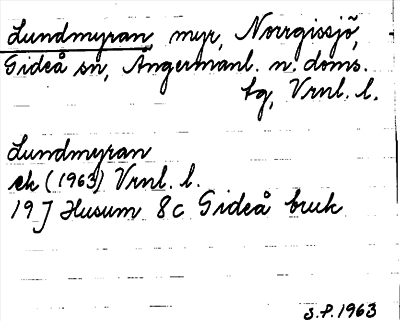 Lundmyran, myr, Norrgissjö,
Gideå sn, Ångermanl. n. doms.
tg, Vrnl. l.
Lundmyran
ek (1963) Vrnl. l.
19J Husum 8c Gideå bruk
S.P. 1963